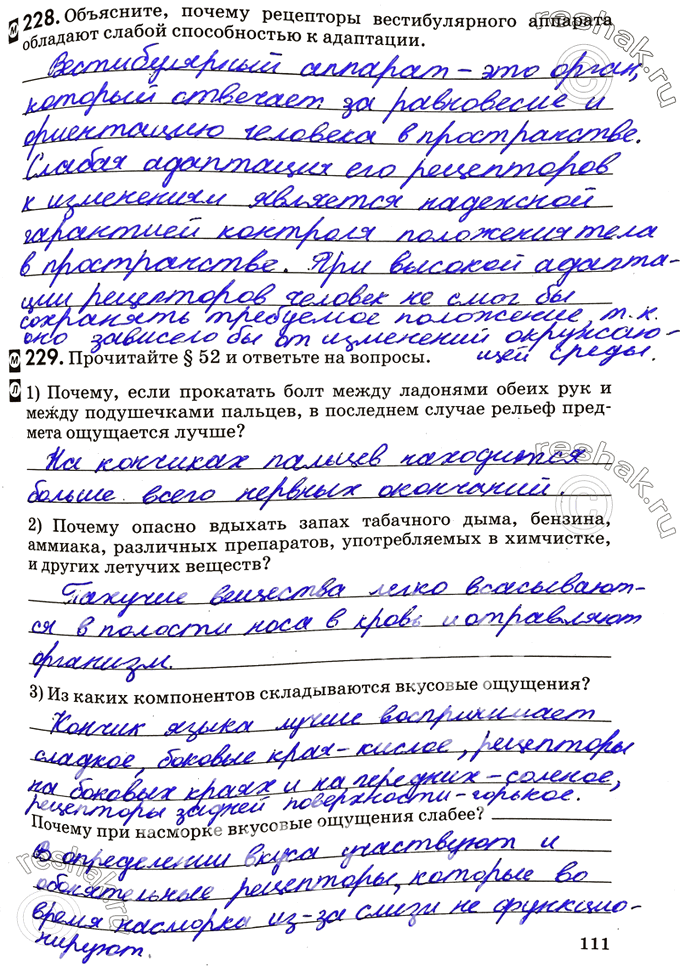 228. Объясните, почему рецепторы вестибулярного аппарата
обладают слабой способностью к адаптации.
Вестибулярный аппарат - это орган,
который отвечает за равновесие и
ориентацию человека в пространстве.
Слабая адаптация его рецепторов
к изменениям является надежной
гарантией контроля положения тела
в пространстве. При высокой адапта-
ции рецепторов человек не смог бы
сохранять требуемое положение, т.к.
оно зависело бы от изменений окружаю-
щей среды.
229. Прочитайте § 52 и ответьте на вопросы.
1) Почему, если прокатать болт между ладонями обеих рук и
между подушечками пальцев, в последнем случае рельеф пред-
мета ощущается лучше?
На кончиках пальцев находится
больше всего нервных окончаний.
2) Почему опасно вдыхать запах табачного дыма, бензина,
аммиака, различных препаратов, употребляемых в химчистке,
и других летучих веществ?
Пахучие вещества легко всасывают-
ся в полости носа в кровь и отравляют
организм.
3) Из каких компонентов складываются вкусовые ощущения?
Кончик языка лучше воспринимает
сладкое, боковые края - кислое, рецепторы
на боковых краях и на передних - соленое,
рецепторы задней поверхности - горькое.
Почему при насморке вкусовые ощущения слабее?
В определении вкуса участвуют и
обонятельные рецепторы, которые во
время насморка из-за слизи не функцио-
нируют.
111
reshak.ru
reshak.ru
reshak.ru
reshak.ru